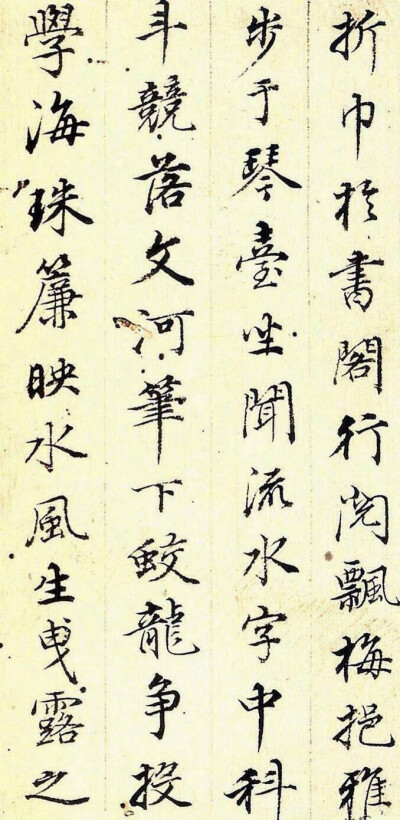 折巾於書閣行閲飄梅挹雅
步于琴臺坐聞流水字中科
斗競落文河筆下蛟龍争投
學海珠簾映水風生曳露之